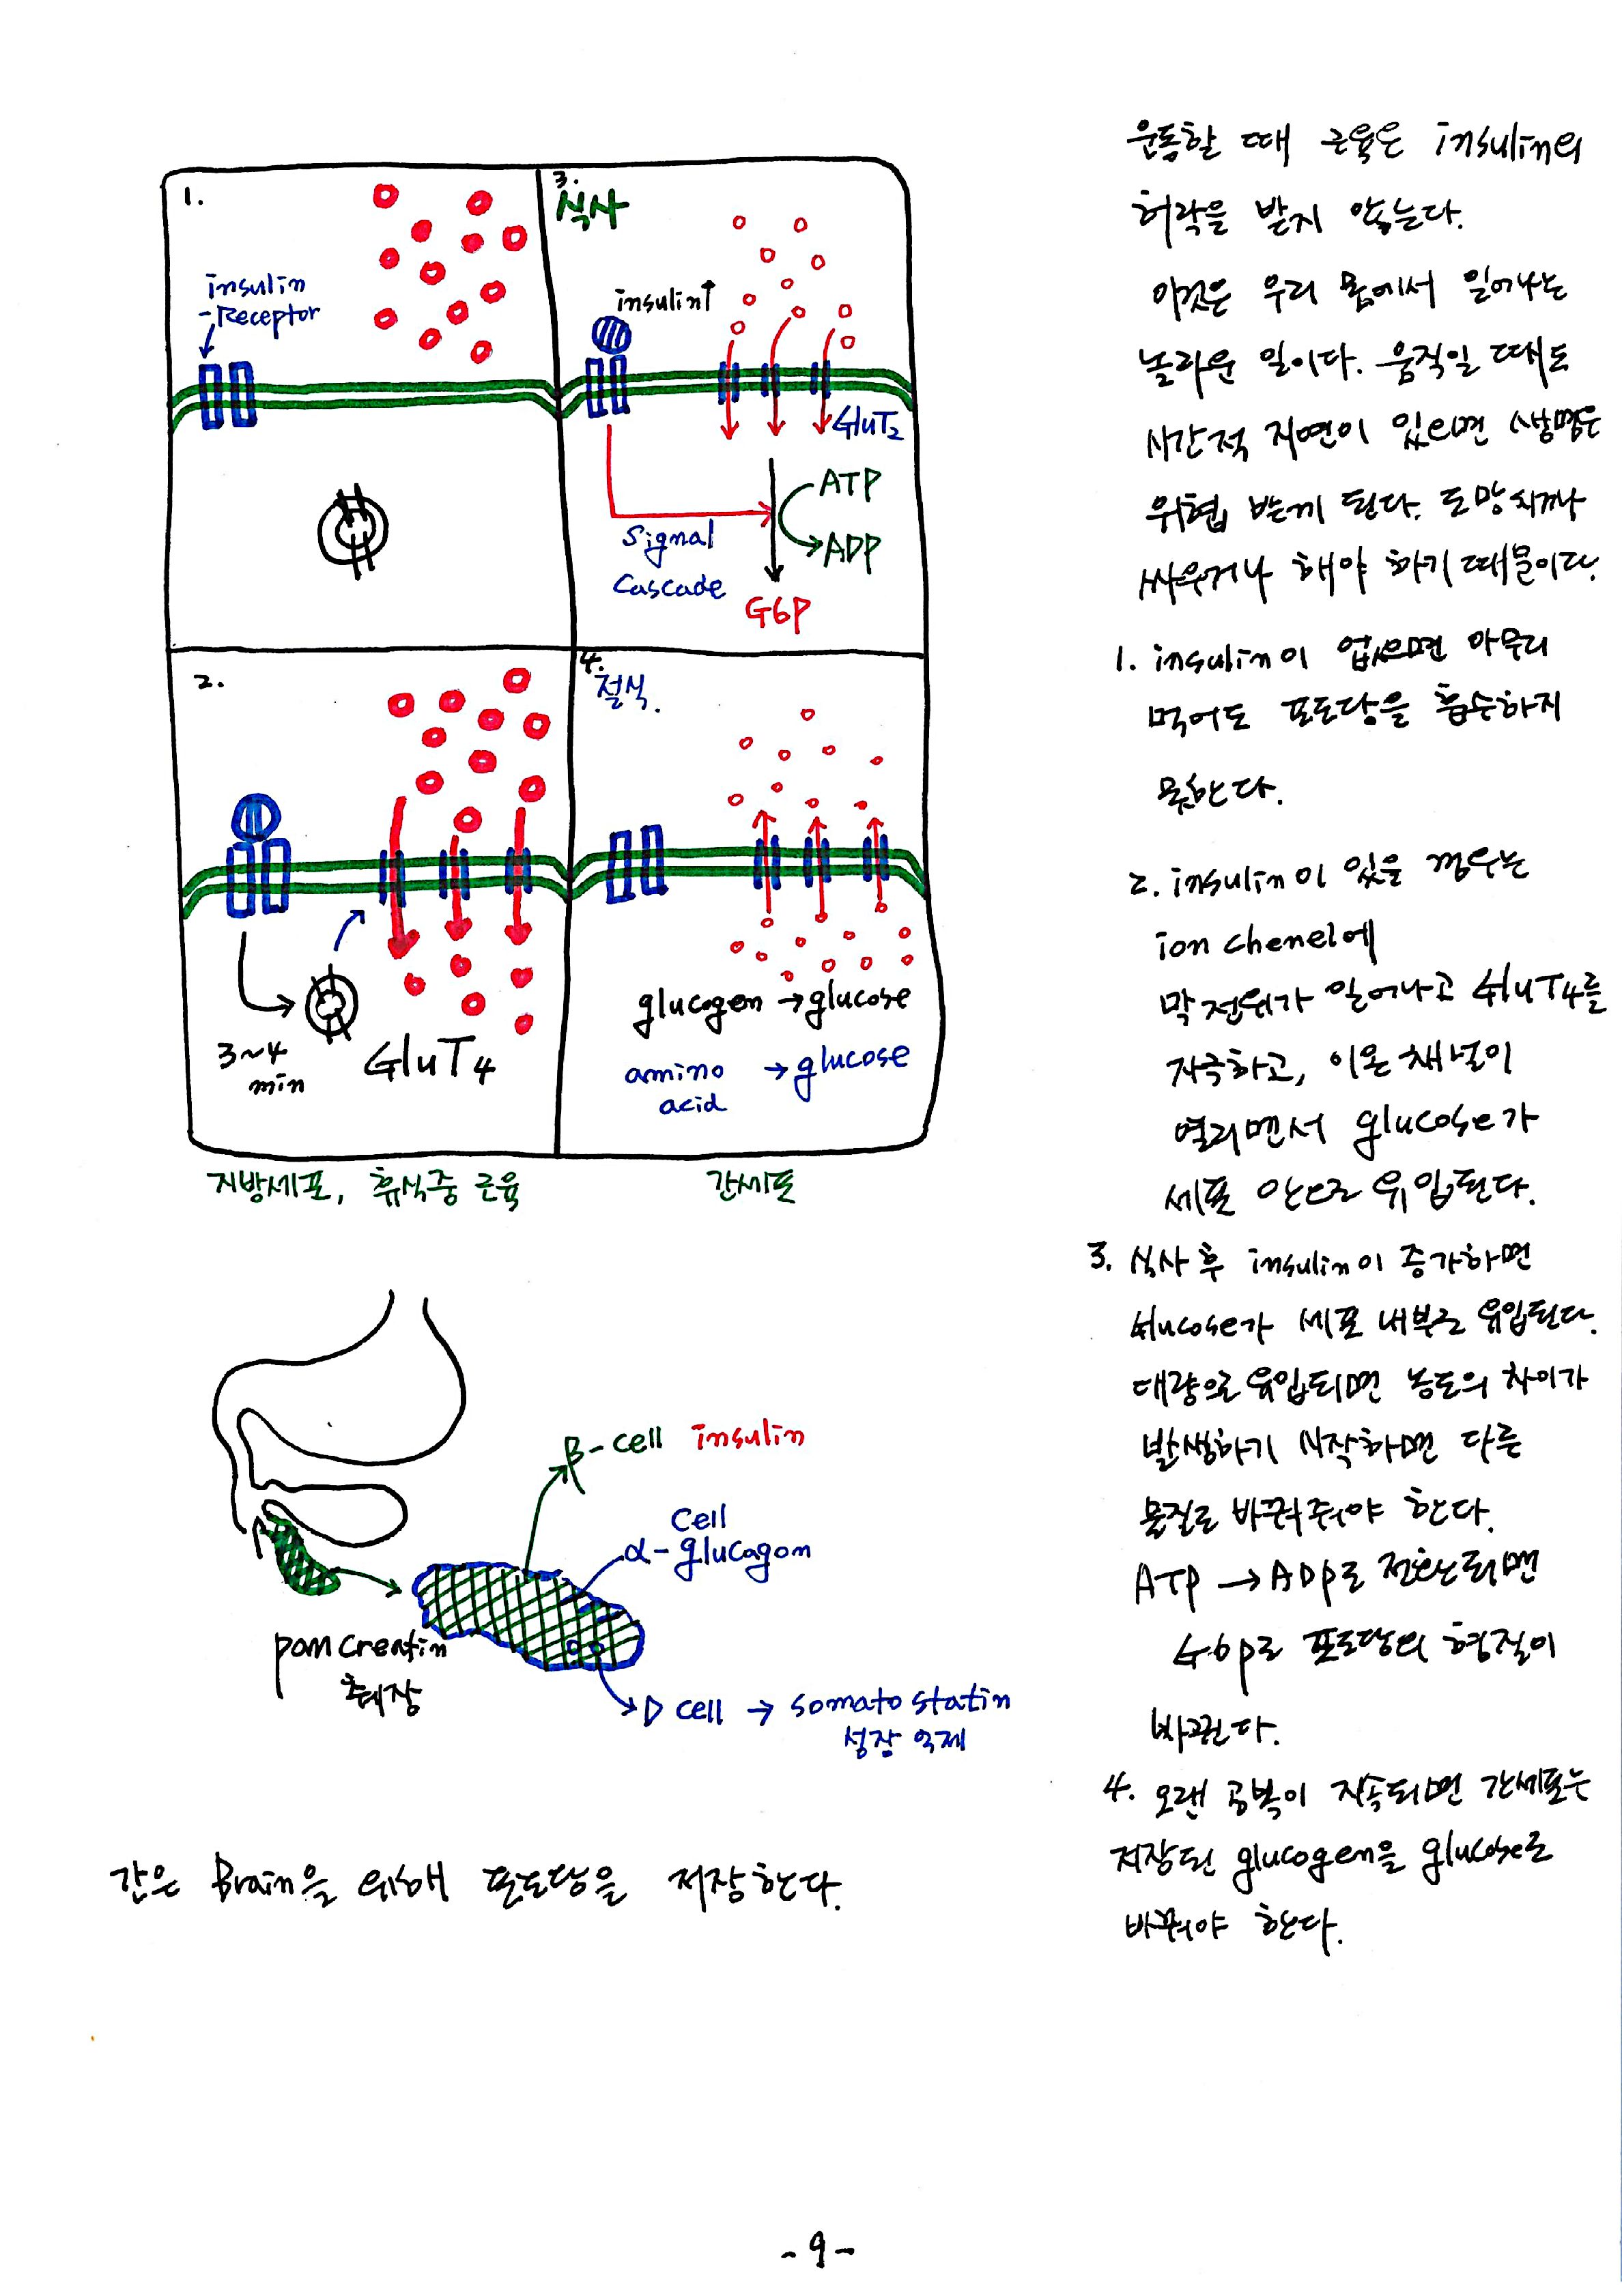 1.
insulin
-Receptor
3.
식사
insulin↑
GluT2
ATP
ADP
Signal
Cascade
G6P
2.
3~4
min
GluT4
4.
절식.
glucogen → glucose
amino → glucose
acid
지방세포, 휴식중 근육
간세포
β-cell insulin
Cell
α-glucagon
pancreatin
췌장
D cell → somatostatin
성장 억제
간은 Brain을 위해 포도당을 저장한다.
운동할 때 근육은 insulin의
허락을 받지 않는다.
이것은 우리 몸에서 일어나는
놀라운 일이다. 움직일 때도
시간적 지연이 있으면 생명은
위협 받게 된다. 도망치거나
싸우거나 해야 하기 때문이다.
1. insulin이 없으면 아무리
먹어도 포도당을 흡수하지
못한다.
2. insulin이 있을 경우는
ion chenel에
막전위가 일어나고 GluT4를
자극하고, 이온채널이
열리면서 glucose가
세포 안으로 유입된다.
3. 식사 후 insulin이 증가하면
Glucose가 세포 내부로 유입된다.
대량으로 유입되면 농도의 차이가
발생하기 시작하면 다른
물질로 바꿔줘야 한다.
ATP → ADP로 전환되면
G6P로 포도당의 형질이
바뀐다.
4. 오랜 공복이 지속되면 간세포는
저장된 glucogen을 glucose로
바꿔야 한다.
-9-